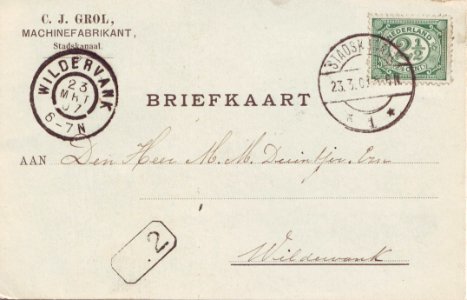 C. J. GROL,
MACHINEFABRIKANT,
Stadskanaal.
WILDERVANK
23
MRT
07
6-7N
NEDERLAND
2½
CENT
STADSK
23.3.0
N
1 *
BRIEFKAART
AAN Den Heer M. M. Duintjer Ezn
2
Wildervank